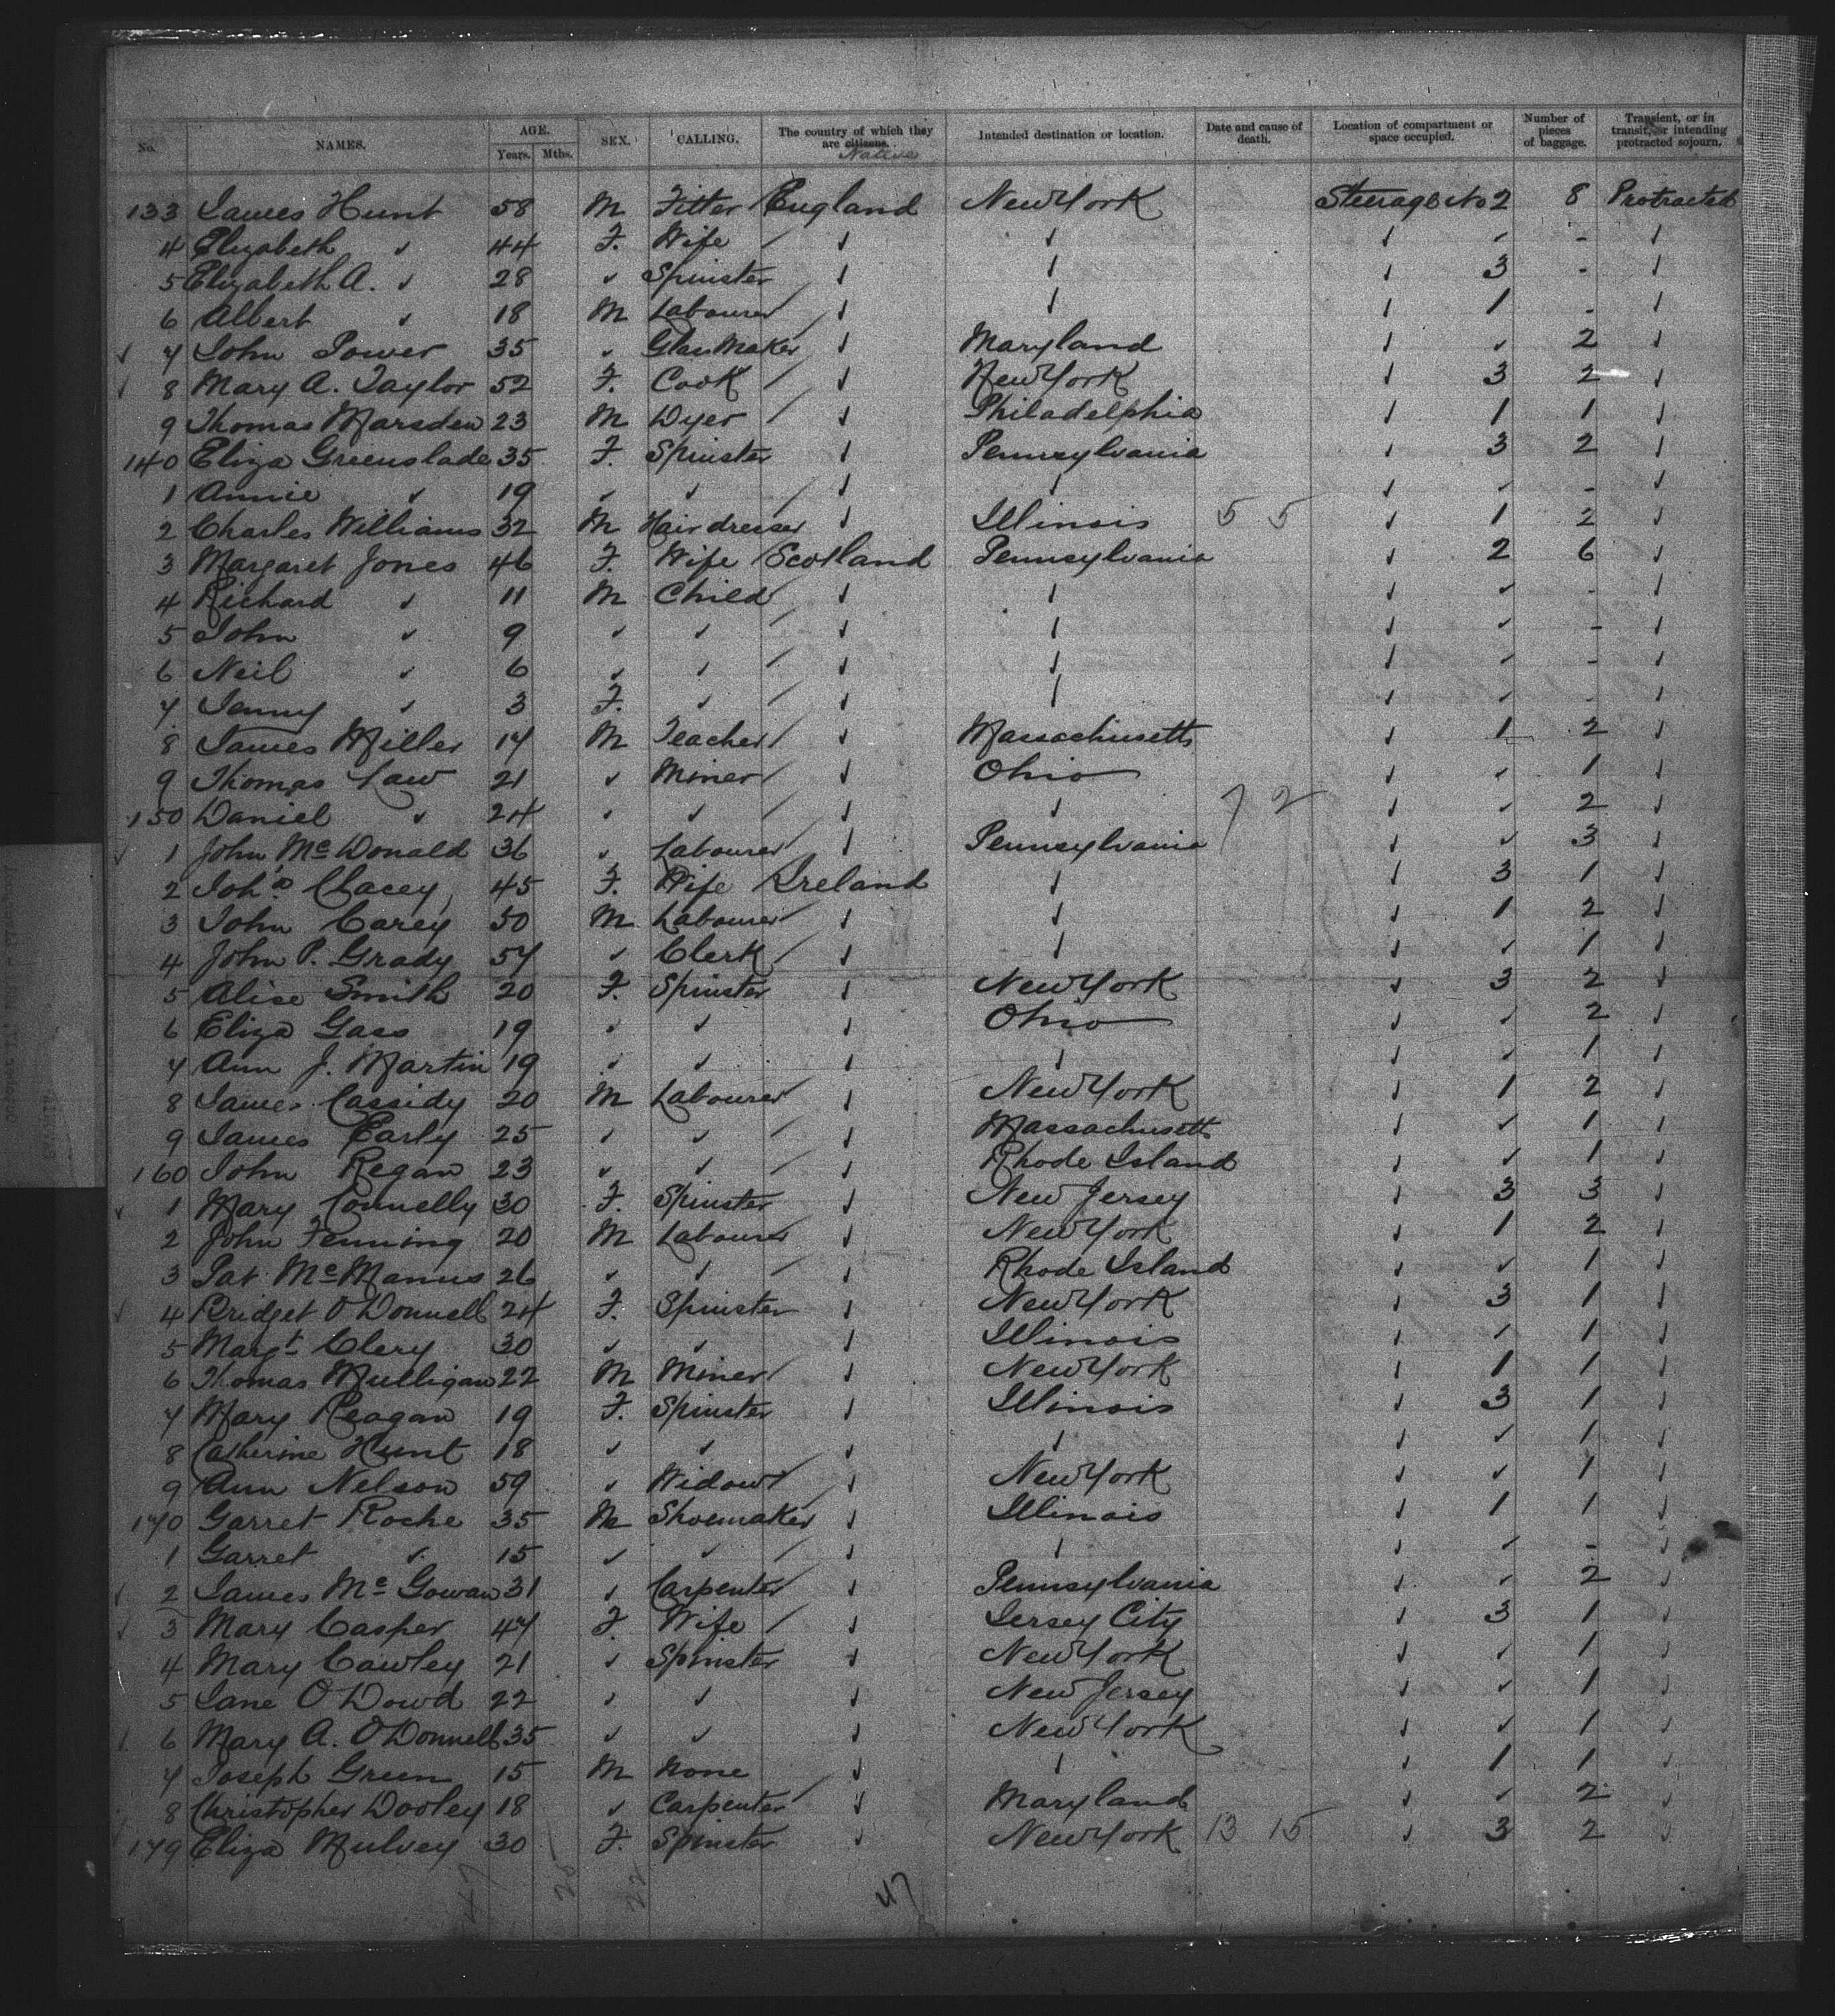 No. NAMES. AGE. Years. Mths. SEX. CALLING. The country of which they are citizens. Native Intended destination or location. Date and cause of death. Location of compartment or space occupied. Number of pieces of baggage. Transient, or in transit, or intending protracted sojourn.
133 James Hunt 58 M Fitter England New York Steerage No 2 8 Protracted
4 Elizabeth ✓ 44 F. Wife ✓ ✓ ✓ ✓ - ✓
5 Elizabeth A. ✓ 28 ✓ Spinster ✓ ✓ ✓ 3 - ✓
6 Albert ✓ 18 M Labourer ✓ ✓ ✓ 1 - ✓
✓ 7 John Power 35 ✓ Glass Maker ✓ Maryland ✓ ✓ 2 ✓
✓ 8 Mary A. Taylor 52 F. Cook ✓ New York ✓ 3 2 ✓
9 Thomas Marsden 23 M Dyer ✓ Philadelphia ✓ 1 1 ✓
140 Eliza Greenslade 35 F. Spinster ✓ Pennsylvania ✓ 3 2 ✓
1 Annie ✓ 19 ✓ ✓ ✓ ✓ ✓ ✓ - ✓
2 Charles Williams 32 M Hairdresser ✓ Illinois 5 5 ✓ 1 2 ✓
3 Margaret Jones 46 F. Wife Scotland Pennsylvania ✓ 2 6 ✓
4 Richard ✓ 11 M Child ✓ ✓ ✓ ✓ - ✓
5 John ✓ 9 ✓ ✓ ✓ ✓ ✓ ✓ - ✓
6 Neil ✓ 6 ✓ ✓ ✓ ✓ ✓ ✓ - ✓
7 Janny ✓ 3 F. ✓ ✓ ✓ ✓ ✓ - ✓
8 James Miller 17 M Teacher ✓ Massachusetts ✓ 1 2 ✓
9 Thomas Law 21 ✓ Miner ✓ Ohio ✓ ✓ 1 ✓
150 Daniel ✓ 24 ✓ ✓ ✓ ✓ 7 2 ✓ ✓ 2 ✓
✓ 1 John McDonald 36 ✓ Labourer ✓ Pennsylvania ✓ ✓ 3 ✓
2 Joha Clacey 45 F. Wife Ireland ✓ ✓ 3 1 ✓
3 John Carey 50 M Labourer ✓ ✓ ✓ 1 2 ✓
4 John P. Grady 57 ✓ Clerk ✓ ✓ ✓ ✓ 1 ✓
5 Alice Smith 20 F. Spinster ✓ New York ✓ 3 2 ✓
6 Eliza Gass 19 ✓ ✓ ✓ Ohio ✓ ✓ 2 ✓
7 Ann J. Martin 19 ✓ ✓ ✓ ✓ ✓ ✓ 1 ✓
8 James Cassidy 20 M Labourer ✓ New York ✓ 1 2 ✓
9 James Early 25 ✓ ✓ ✓ Massachusetts ✓ ✓ 1 ✓
160 John Regan 23 ✓ ✓ ✓ Rhode Island ✓ ✓ 1 ✓
✓ 1 Mary Connelly 30 F. Spinster ✓ New Jersey ✓ 3 3 ✓
2 John Fenning 20 M Labourer ✓ New York ✓ 1 2 ✓
3 Pat McManus 26 ✓ ✓ ✓ Rhode Island ✓ ✓ 1 ✓
✓ 4 Bridget O'Donnell 24 F. Spinster ✓ New York ✓ 3 1 ✓
5 Margt Clery 30 ✓ ✓ ✓ Illinois ✓ ✓ 1 ✓
6 Thomas Mulligan 22 M Miner ✓ New York ✓ 1 1 ✓
7 Mary Reagan 19 F. Spinster ✓ Illinois ✓ 3 1 ✓
8 Catherine Hunt 18 ✓ ✓ ✓ ✓ ✓ ✓ 1 ✓
9 Ann Nelson 59 ✓ Widow ✓ New York ✓ ✓ 1 ✓
170 Garret Roche 35 M Shoemaker ✓ Illinois ✓ 1 1 ✓
1 Garret ✓ 15 ✓ ✓ ✓ ✓ ✓ ✓ - ✓
✓ 2 James McGowan 31 ✓ Carpenter ✓ Pennsylvania ✓ ✓ 2 ✓
✓ 3 Mary Casper 47 F. Wife ✓ Jersey City ✓ 3 1 ✓
4 Mary Cawley 21 ✓ Spinster ✓ New York ✓ ✓ 1 ✓
5 Jane O'Dowd 22 ✓ ✓ ✓ New Jersey ✓ ✓ 1 ✓
6 Mary A. O'Donnell 35 ✓ ✓ ✓ New York ✓ ✓ 1 ✓
7 Joseph Green 15 M None ✓ ✓ ✓ 1 1 ✓
8 Christopher Dooley 18 ✓ Carpenter ✓ Maryland ✓ ✓ 2 ✓
179 Eliza Mulvey 30 F. Spinster ✓ New York 13 15 ✓ 3 2 ✓
47 25 22 47